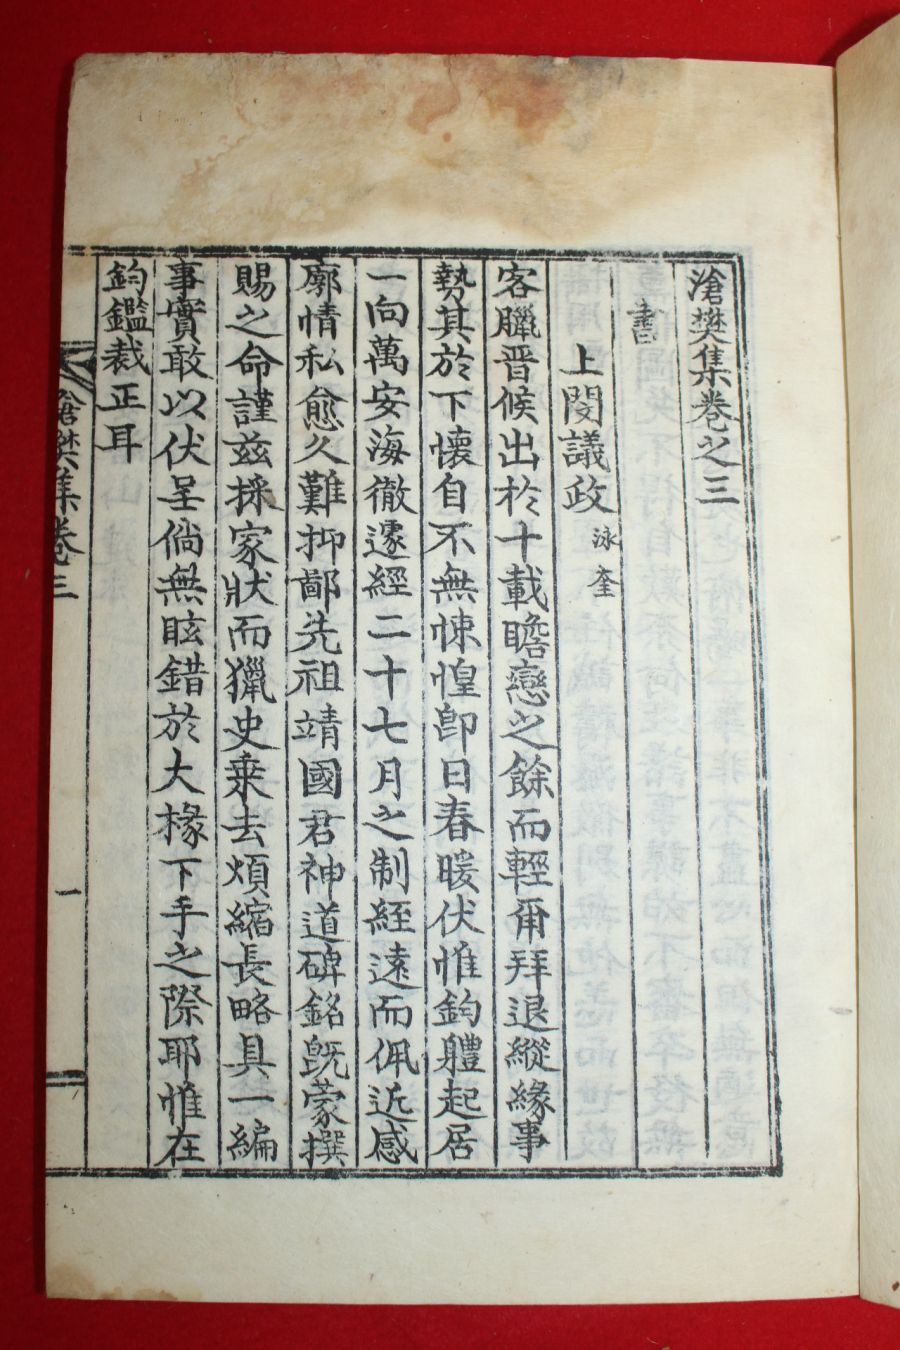 滄樊集卷之三
書
上閔議政 泳奎
客臘晋候出於十載瞻戀之餘而輕爾拜退縱緣事
勢其於下懷自不無悚惶卽日春暖伏惟鈞軆起居
一向萬安海徹遽經二十七月之制絰遠而佩近感
廓情私愈久難抑鄙先祖靖國君神道碑銘旣蒙撰
賜之命謹玆採家狀而獵史乗去煩縮長略具一編
事實敢以伏呈倘無眩錯於大椽下手之際耶惟在
鈞鑑裁正耳
滄樊集卷三
一